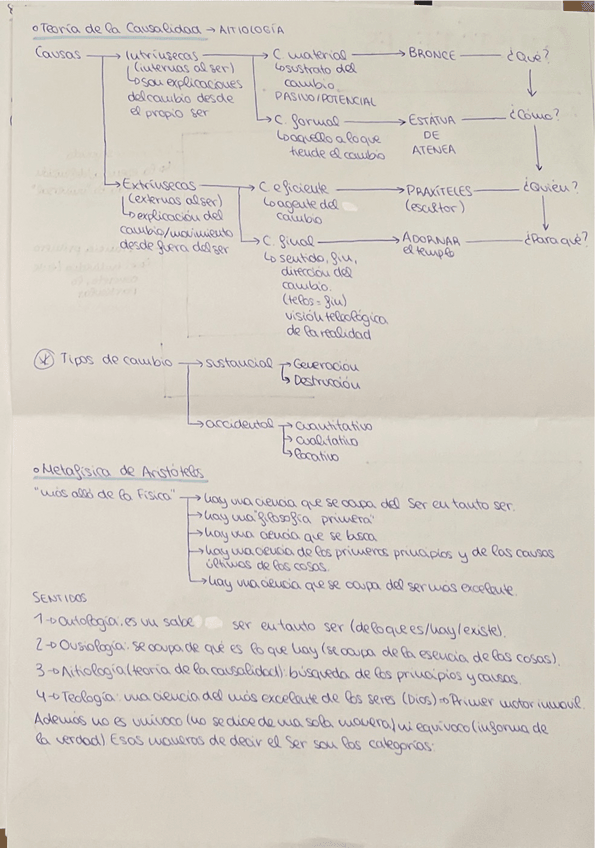 o Teoría de la Causalidad → AITIOLOGÍA
Causas → Intrínsecas → C. material → BRONCE — ¿Qué?
(internas al ser) ↳ sustrato del
↳ son explicaciones cambio
del cambio desde PASIVO/POTENCIAL
el propio ser → C. formal → ESTATUA — ¿Cómo?
↳ aquello a lo que DE
tiende el cambio ATENEA
→ Extrínsecas → C eficiente → PRAXÍTELES — ¿Quién?
(externas al ser) ↳ agente del (escultor)
↳ explicación del cambio
cambio/movimiento → C. final → ADORNAR — ¿Para qué?
desde fuera del ser ↳ sentido, fin, el templo
dirección del
cambio.
(telos = fin)
visión teleológica
de la realidad
* Tipos de cambio → sustancial → Generación
↳ Destrucción
→ accidental → cuantitativo
→ cualitativo
↳ locativo
o Metafísica de Aristóteles
"más allá de la Física" → hay una ciencia que se ocupa del Ser en tanto ser.
→ hay una "filosofía primera"
→ hay una ciencia que se busca
→ hay una ciencia de los primeros principios y de las causas
últimas de las cosas.
→ hay una ciencia que se ocupa del ser más excelente.
SENTIDOS
1→ Ontología: es un sabe ser en tanto ser (de lo que es/hay/existe).
2→ Ousiología: se ocupa de qué es lo que hay (se ocupa de la esencia de las cosas).
3→ Aitiología (teoría de la causalidad): búsqueda de los principios y causas.
4→ Teología: una ciencia del más excelente de los seres (Dios) → Primer motor inmóvil.
Además no es unívoco (no se dice de una sola manera) ni equívoco (informa de
la verdad) Esas maneras de decir el Ser son las categorías: